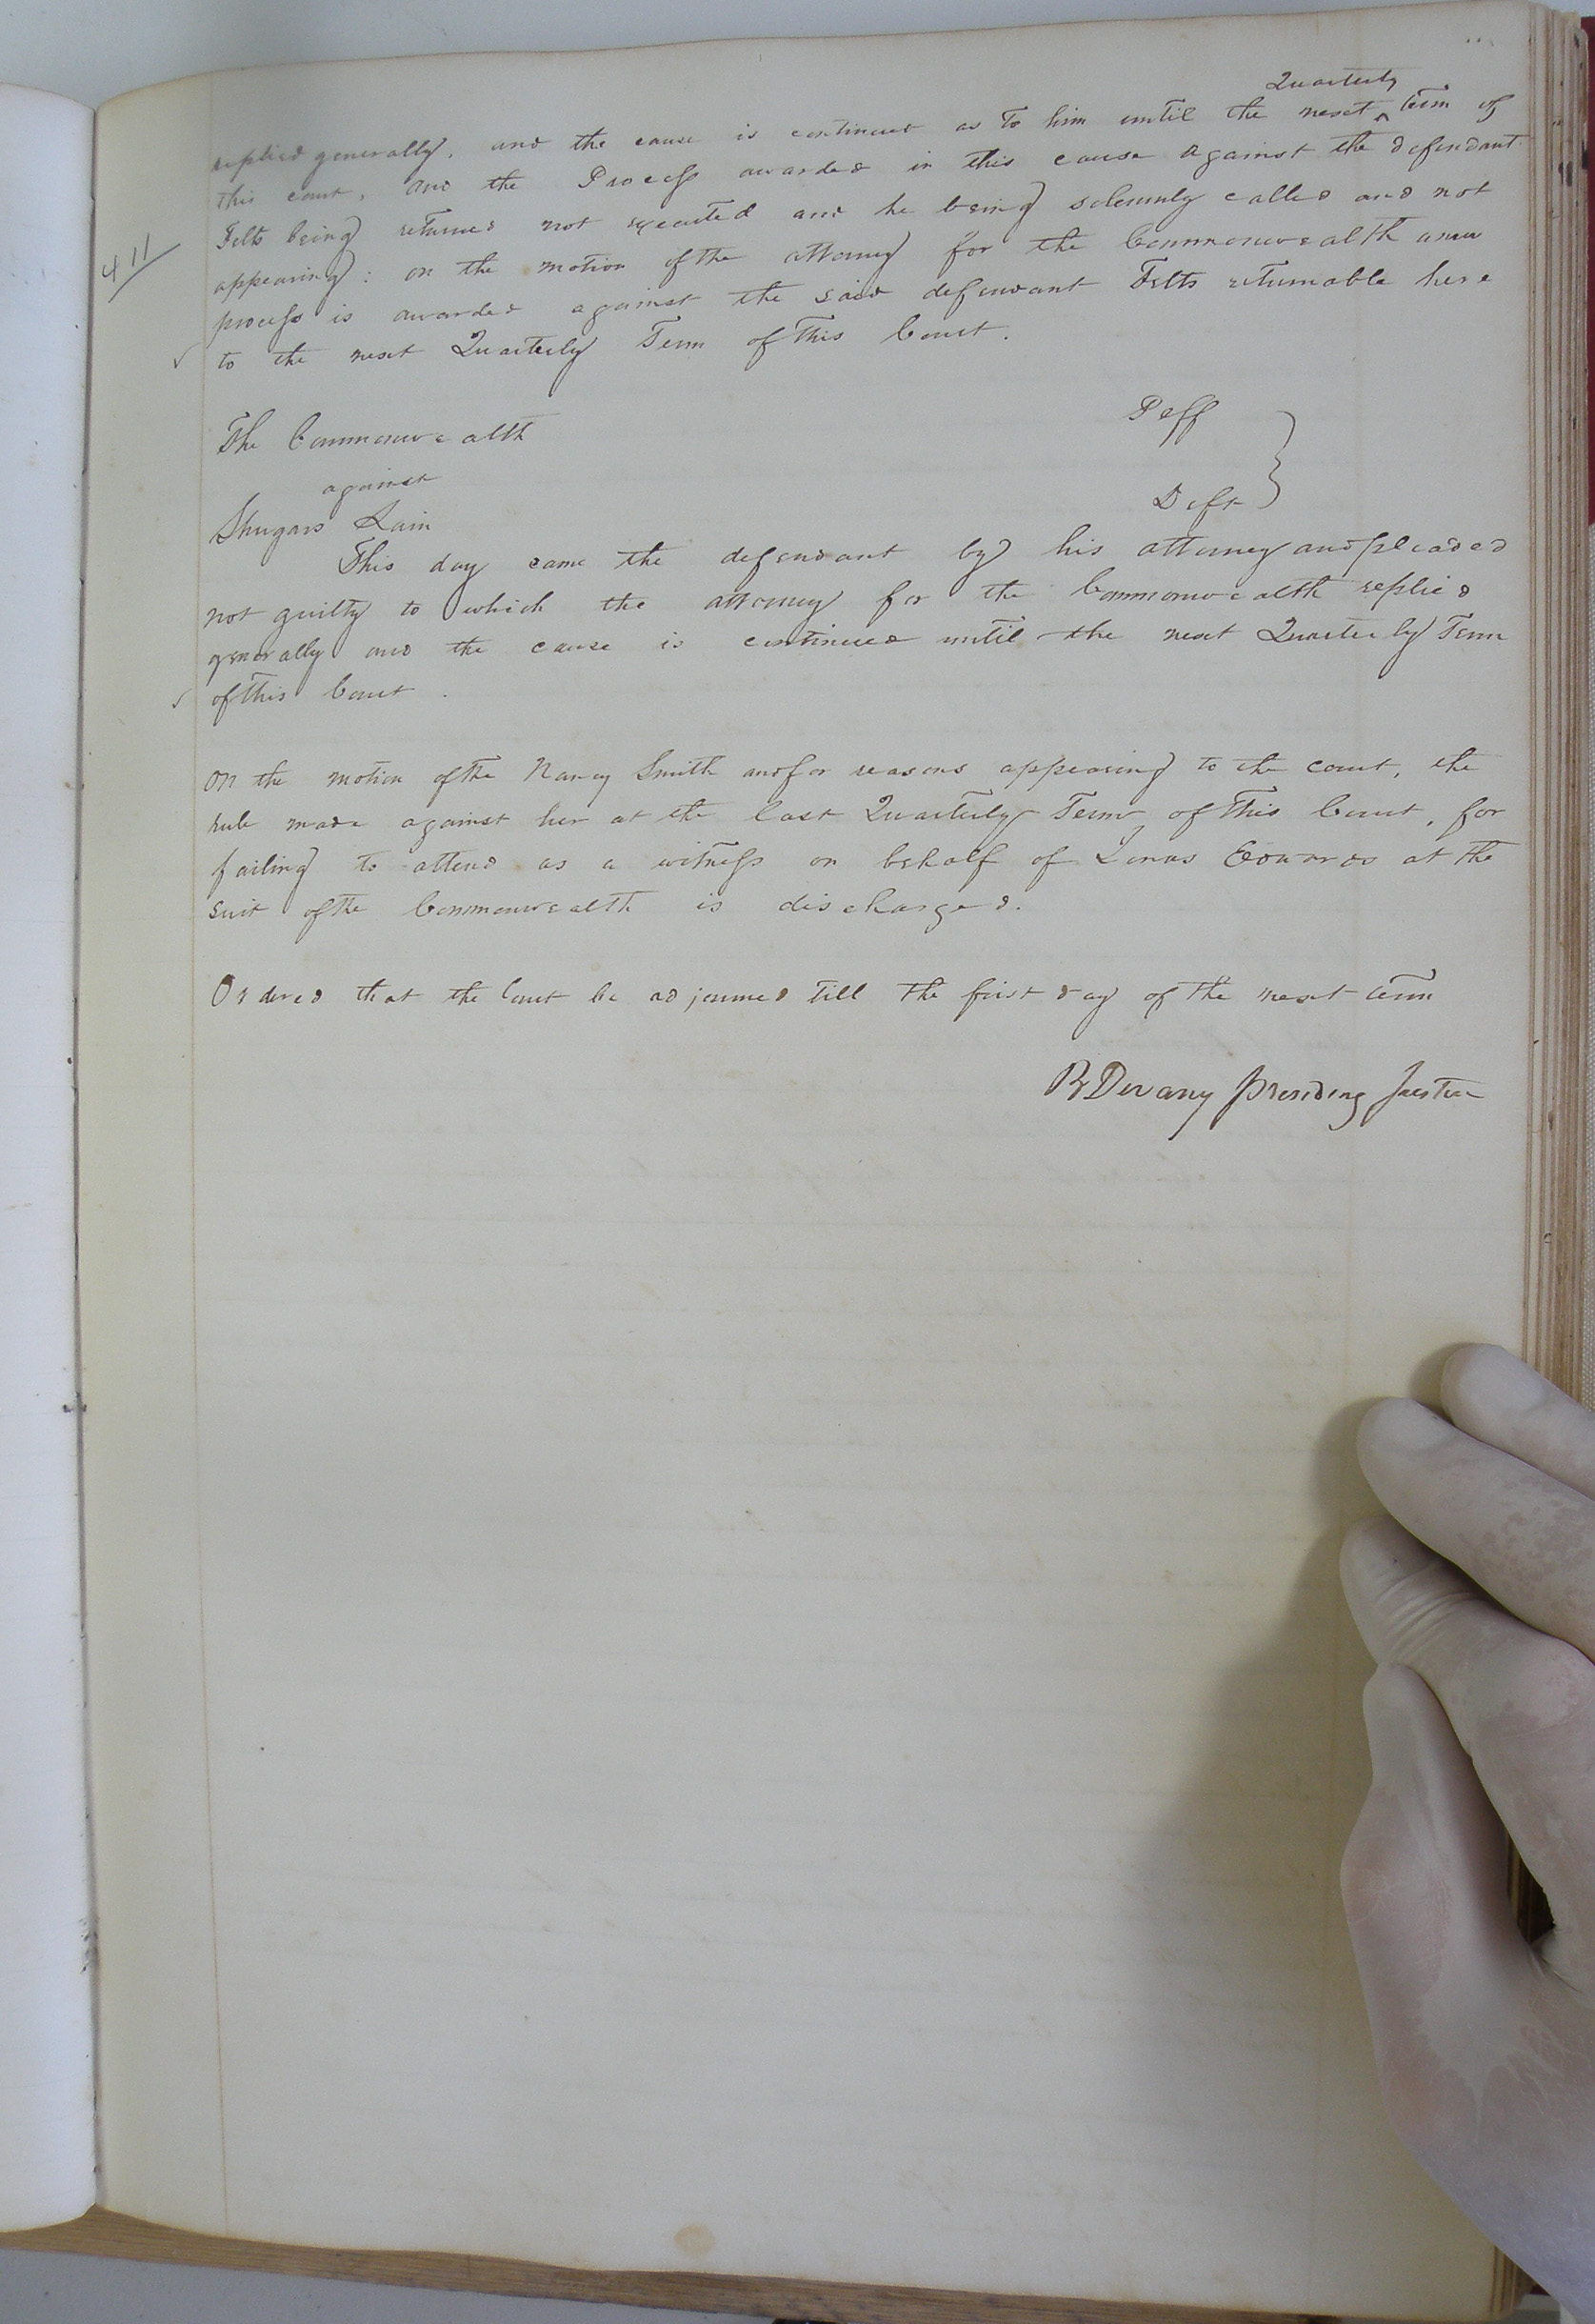 Quarterly
replied generally, and the cause is continued as to him until the next ^ term of
this court, and the Process awarded in this cause against the defendant
Felts being returned not executed and he being solemnly called and not
411
appearing: on the motion of the attorney for the Commonwealth a new
process is awarded against the said defendant Felts returnable here
to the next Quarterly Term of this Court.
The Commonwealth Peff
against
Shugars Lain Deft
This day came the defendant by his attorney and pleaded
not guilty to which the attorney for the Commonwealth replied
generally and the cause is continued until the next Quarterly Term
of this Court.
On the motion of the Nancy Smith and for reasons appearing to the court, the
rule made against her at the last Quarterly Term of this Court, for
failing to attend as a witness on behalf of Edwards at the
suit of the Commonwealth is discharged.
Ordered that the Court be adjourned till the first day of the next term
R Devany presiding Justice